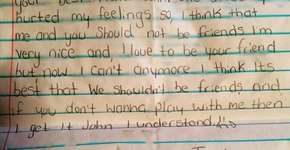 your
hurted my feelings so, I think that
me and you should not be friends I'm
very nice and, I love to be your friend
but now I can't anymore I think its
best that we shouldn't be friends and
if you don't wanna play with me then
I get it John I understand.